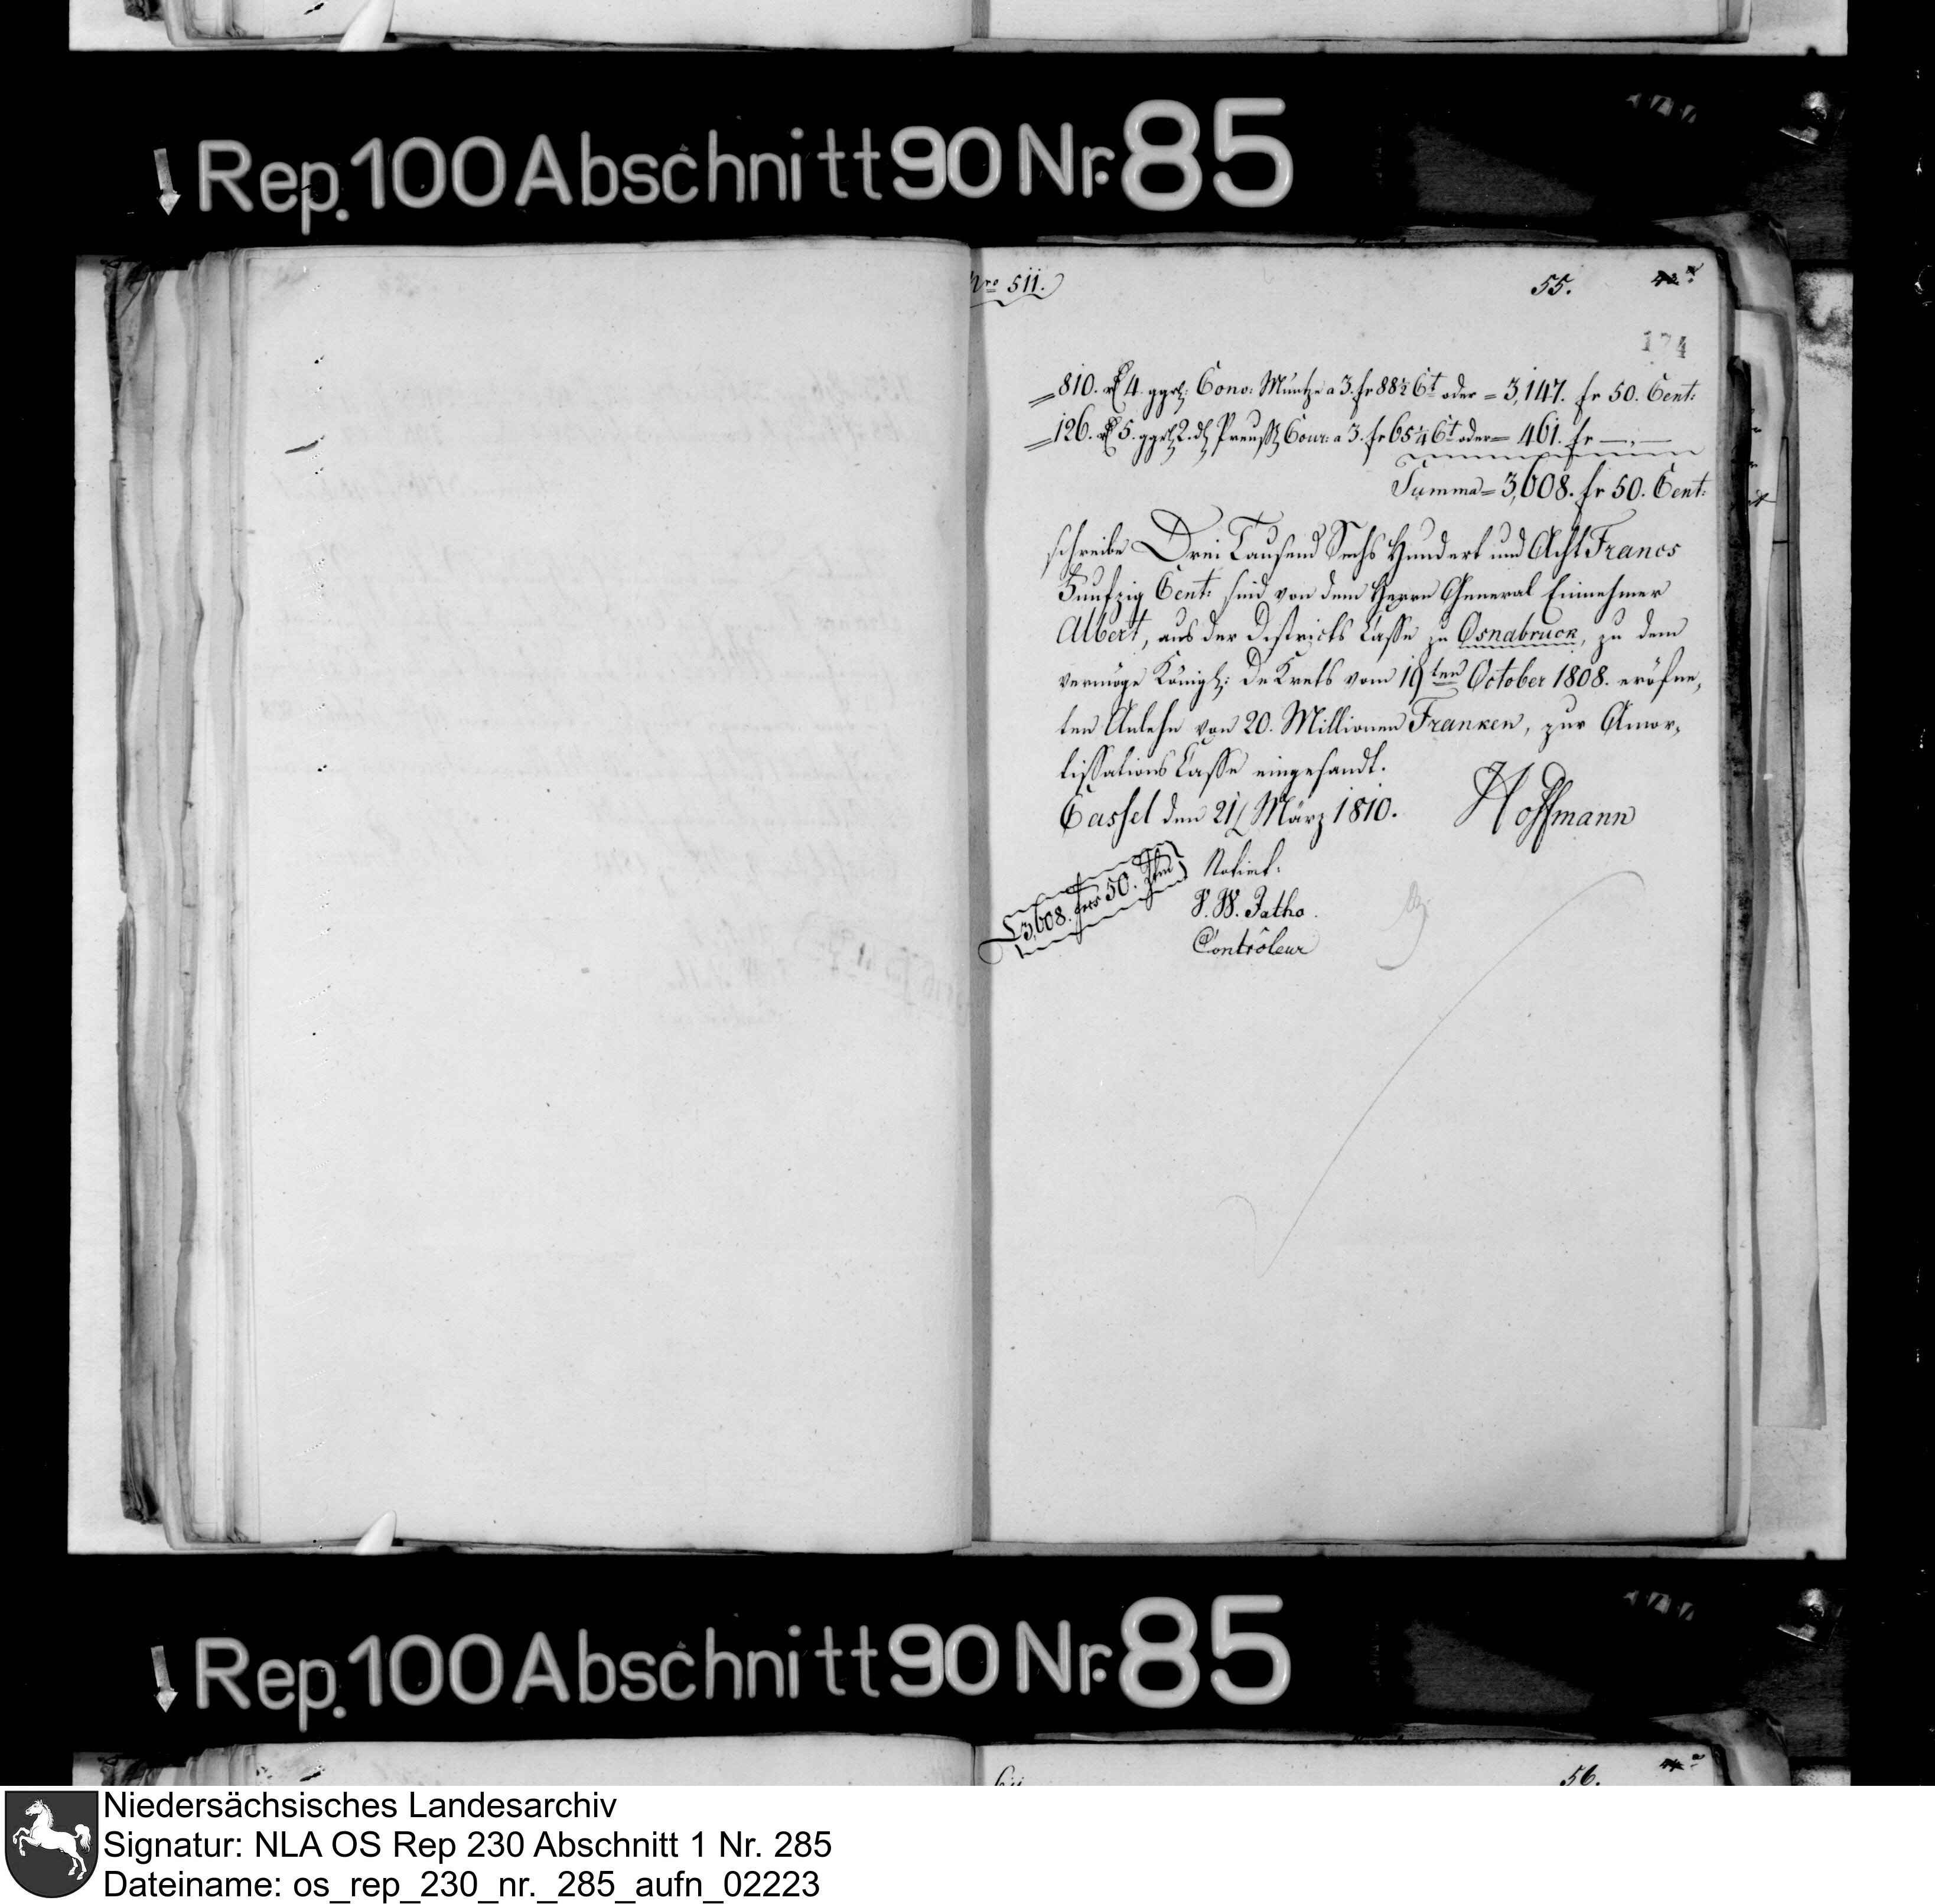 Rep. 100 Abschnitt 90 Nr. 85
Nro 511.
55.
174
810. rt 4. ggr: Conv: Muntze a 3. fr 88½ Ct oder = 3,147. fr 50. Cent:
126. rt 5. ggr 2. d Preuß Cour: a 3. fr 65¼ Ct oder = 461. fr —,—
Summa = 3,608. fr 50. Cent:
schreibe Drei Tausend Sechs Hundert und Acht Francs
Funfzig Cent: sind von dem Herrn General Einnehmer
Albert, aus der Districts Casse zu Osnabruck, zu dem
vermöge Königl: DeKrets vom 19ten October 1808. eröfne,
ten Anlehn von 20. Millionen Franken, zur Amor,
tissations Casse eingesandt.
Cassel den 21t März 1810. Hoffmann
3,608. frcs 50. Ctm
Notirt.
F. W. Fatho.
Contrôleur
Rep. 100 Abschnitt 90 Nr. 85
56.
Niedersächsisches Landesarchiv
Signatur: NLA OS Rep 230 Abschnitt 1 Nr. 285
Dateiname: os_rep_230_nr._285_aufn_02223